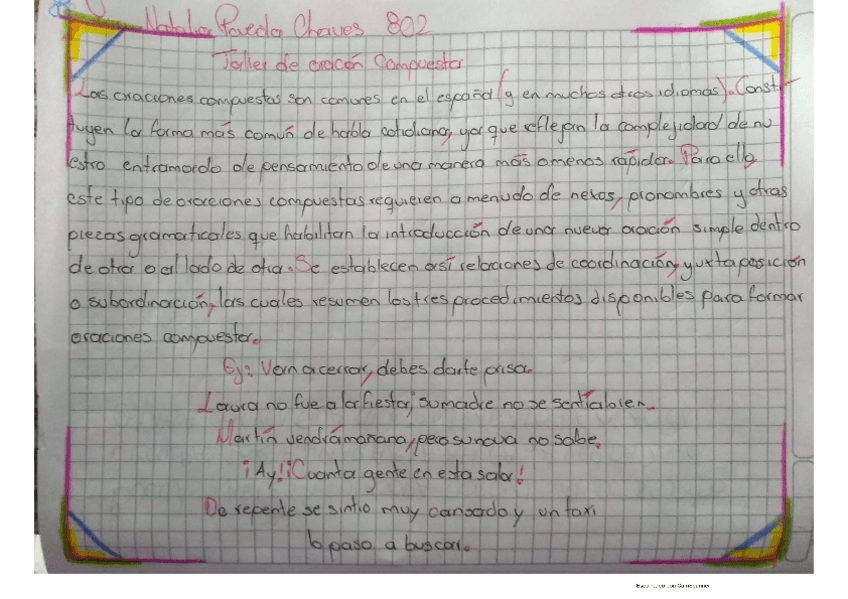 Natalia Pareda Chaves 802
Taller de oración Compuesta
Las oraciones compuestas son comunes en el español (y en muchos otros idiomas). Consti-
tuyen la forma más común de habla cotidiana, ya que reflejan la complejidad de nu
estro entramado de pensamiento de una manera más o menos rápida. Para ello
este tipo de oraciones compuestas requieren a menudo de nexos, pronombres y otras
piezas gramaticales que habilitan la introducción de una nueva oración simple dentro
de otra o al lado de otra. Se establecen así relaciones de coordinación, yuxtaposición
o subordinación, las cuales resumen los tres procedimientos disponibles para formar
oraciones compuesta.
Ej: Van a cerrar, debes darte prisa.
Laura no fue a la fiesta, su madre no se sentía bien.
Martín vendrá mañana, pero su novia no sabe.
¡Ay! ¡Cuanta gente en esta sala!
De repente se sintio muy cansado y un taxi
lo paso a buscar.